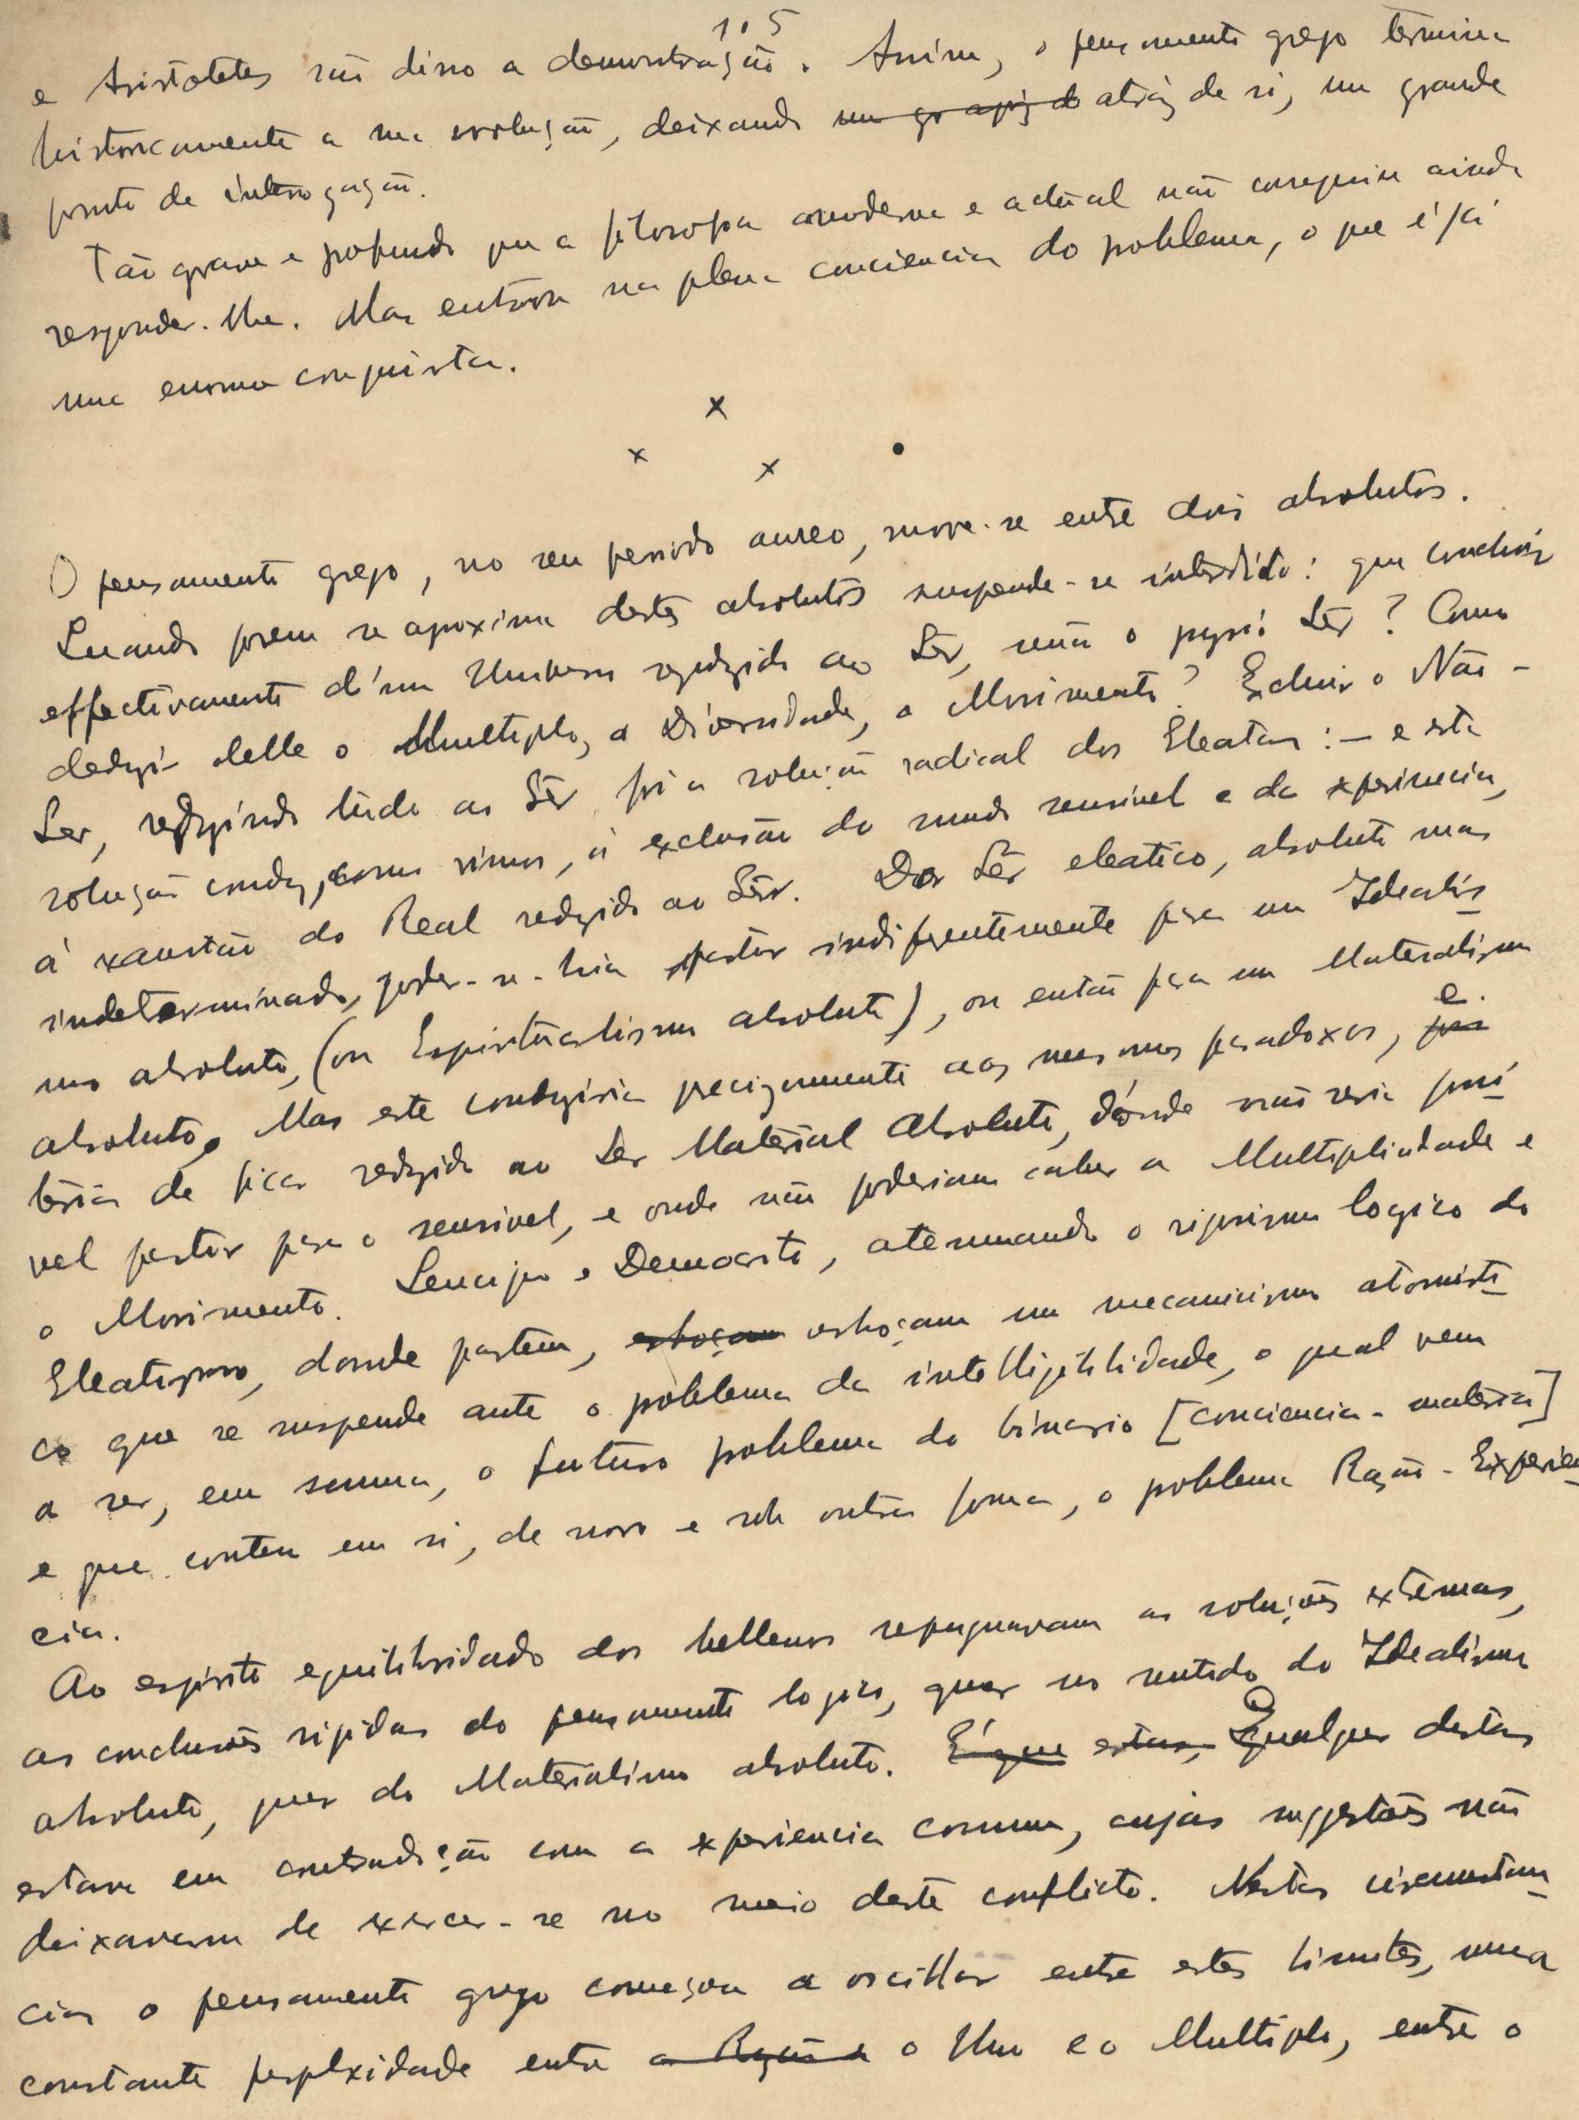 105
e Aristoteles são disso a demonstração. Assim, o pensamento grego termina
historicamente a sua evolução, deixando atráz de si, um grande
ponto de interrogação.
Tão grave e profundo que a filosofia moderna e actual não conseguiu ainda
responder-lhe. Mas entrou na plena conciencia do problema, o que é já
uma enorme conquista.
x
x x
O pensamento grego, no seu periodo aureo, move-se entre dois absolutos.
Quando porem se aproxima destes absolutos suspende-se interdito: que concluir
effectivamente d'um Universo reduzido ao Sêr, senão o proprio Sêr? Como
deduzir delle o Multiplo, a Diversidade, o Movimento? Excluir o Não-
Ser, reduzindo tudo ao Sêr foi a solução radical dos Eleatas: — e esta
solução conduz, como vimos, á exclusão do mundo sensivel e da experiencia,
á exaustão do Real reduzido ao Sêr. Do Sêr eleatico, absoluto mas
indeterminado, poder-se-hia partir indiferentemente para um Idealis-
mo absoluto, (ou Espiritualismo absoluto), ou então para um Materialismo
absoluto. Mas este conduziria precizamente aos mesmos paradoxos, e
teria de ficar reduzido ao Ser Material Absoluto, d'onde não seria possi-
vel partir para o sensivel, e onde não poderiam caber a Multiplicidade e
o Movimento. Leucipo e Democrito, atenuando o rigorismo logico do
Eleatismo, donde partem, esboçam esboçam um mecanicismo atomisti-
co que se suspende ante o problema da intelligibilidade, o qual vem
a ser, em summa, o futuro problema do binario [conciencia-materia]
e que contem em si, de novo e sob outra forma, o problema Razão-Experien-
cia.
Ao espirito equilibrado dos hellenos repugnavam as soluções extremas,
as conclusões rigidas do pensamento logico, quer no sentido do Idealismo
absoluto, quer do Materialismo absoluto. É que estas, Qualquer destas
estava em contradição com a experiencia comum, cujas sugestões não
deixavam de exercer-se no meio deste conflicto. Nestas circumstan-
cias o pensamento grego começou a oscillar entre estes limites, numa
constante perplexidade entre a Razão e o Uno e o Multiplo, entre o